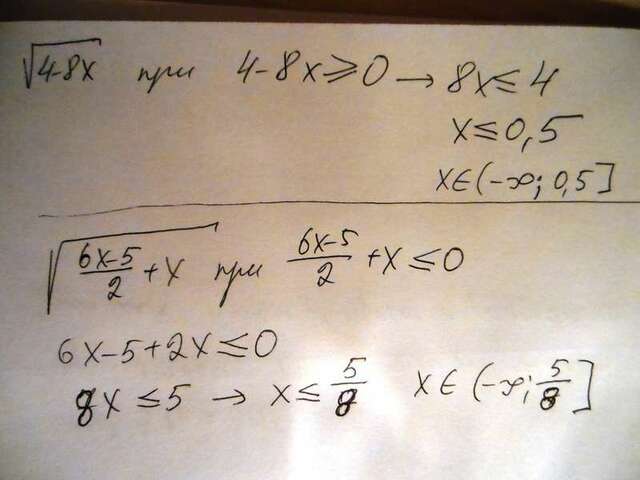 √4-8x при 4-8x⩾0 → 8x≤4
x≤0,5
x∈(-∞; 0,5]
√(6x-5)/2+x при (6x-5)/2+x≤0
6x-5+2x≤0
8x≤5 → x≤5/8 x∈(-∞; 5/8]